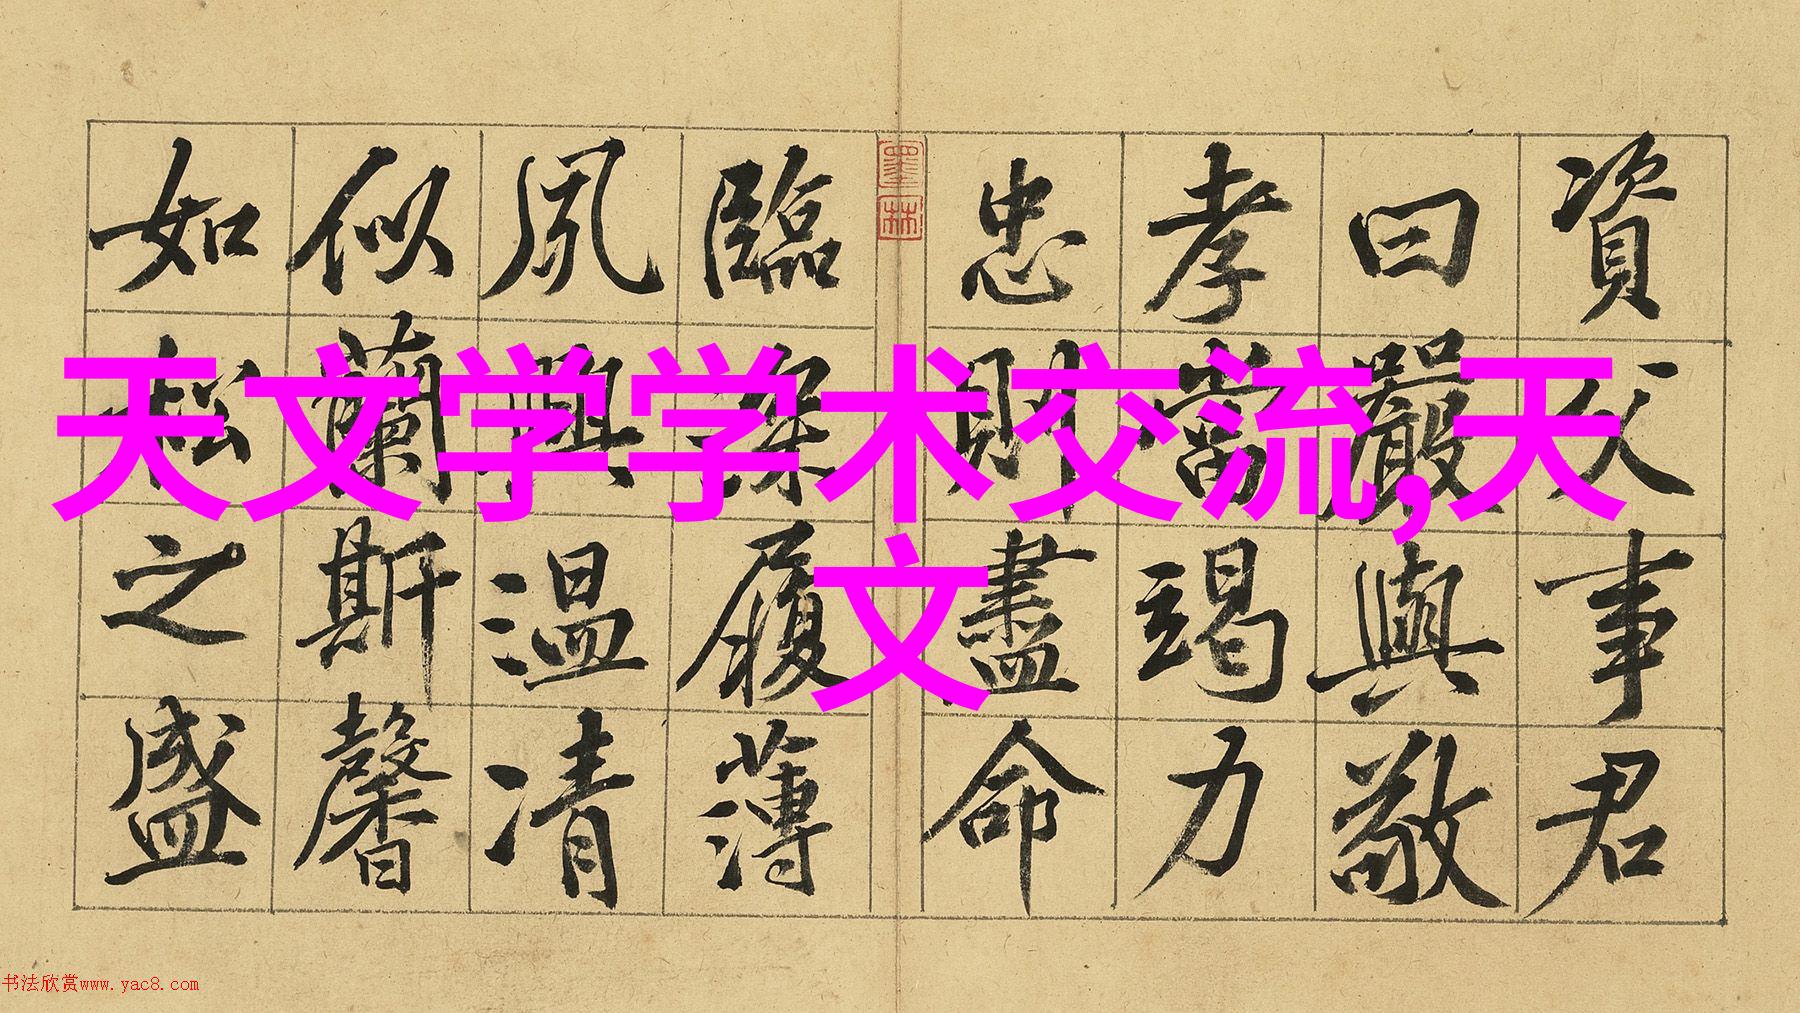 資父事君
曰嚴與敬
孝當竭力
忠則盡命
臨深履薄
夙興溫凊
似蘭斯馨
如松之盛
墨林
天文学学术交流,天
文
书法欣赏www.yac8.com